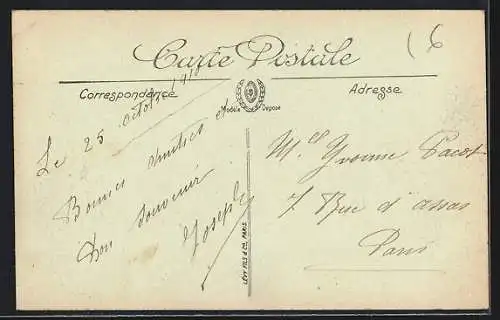 Carte Postale
(6
Correspondance
Modèle Déposé
Adresse
Le 25 octobre 1918
Bonnes amitiés et
bon souvenir
Joseph
LÉVY FILS & Cie, PARIS
Mlle Yvonne Pacot
7 Rue d'assas
Paris